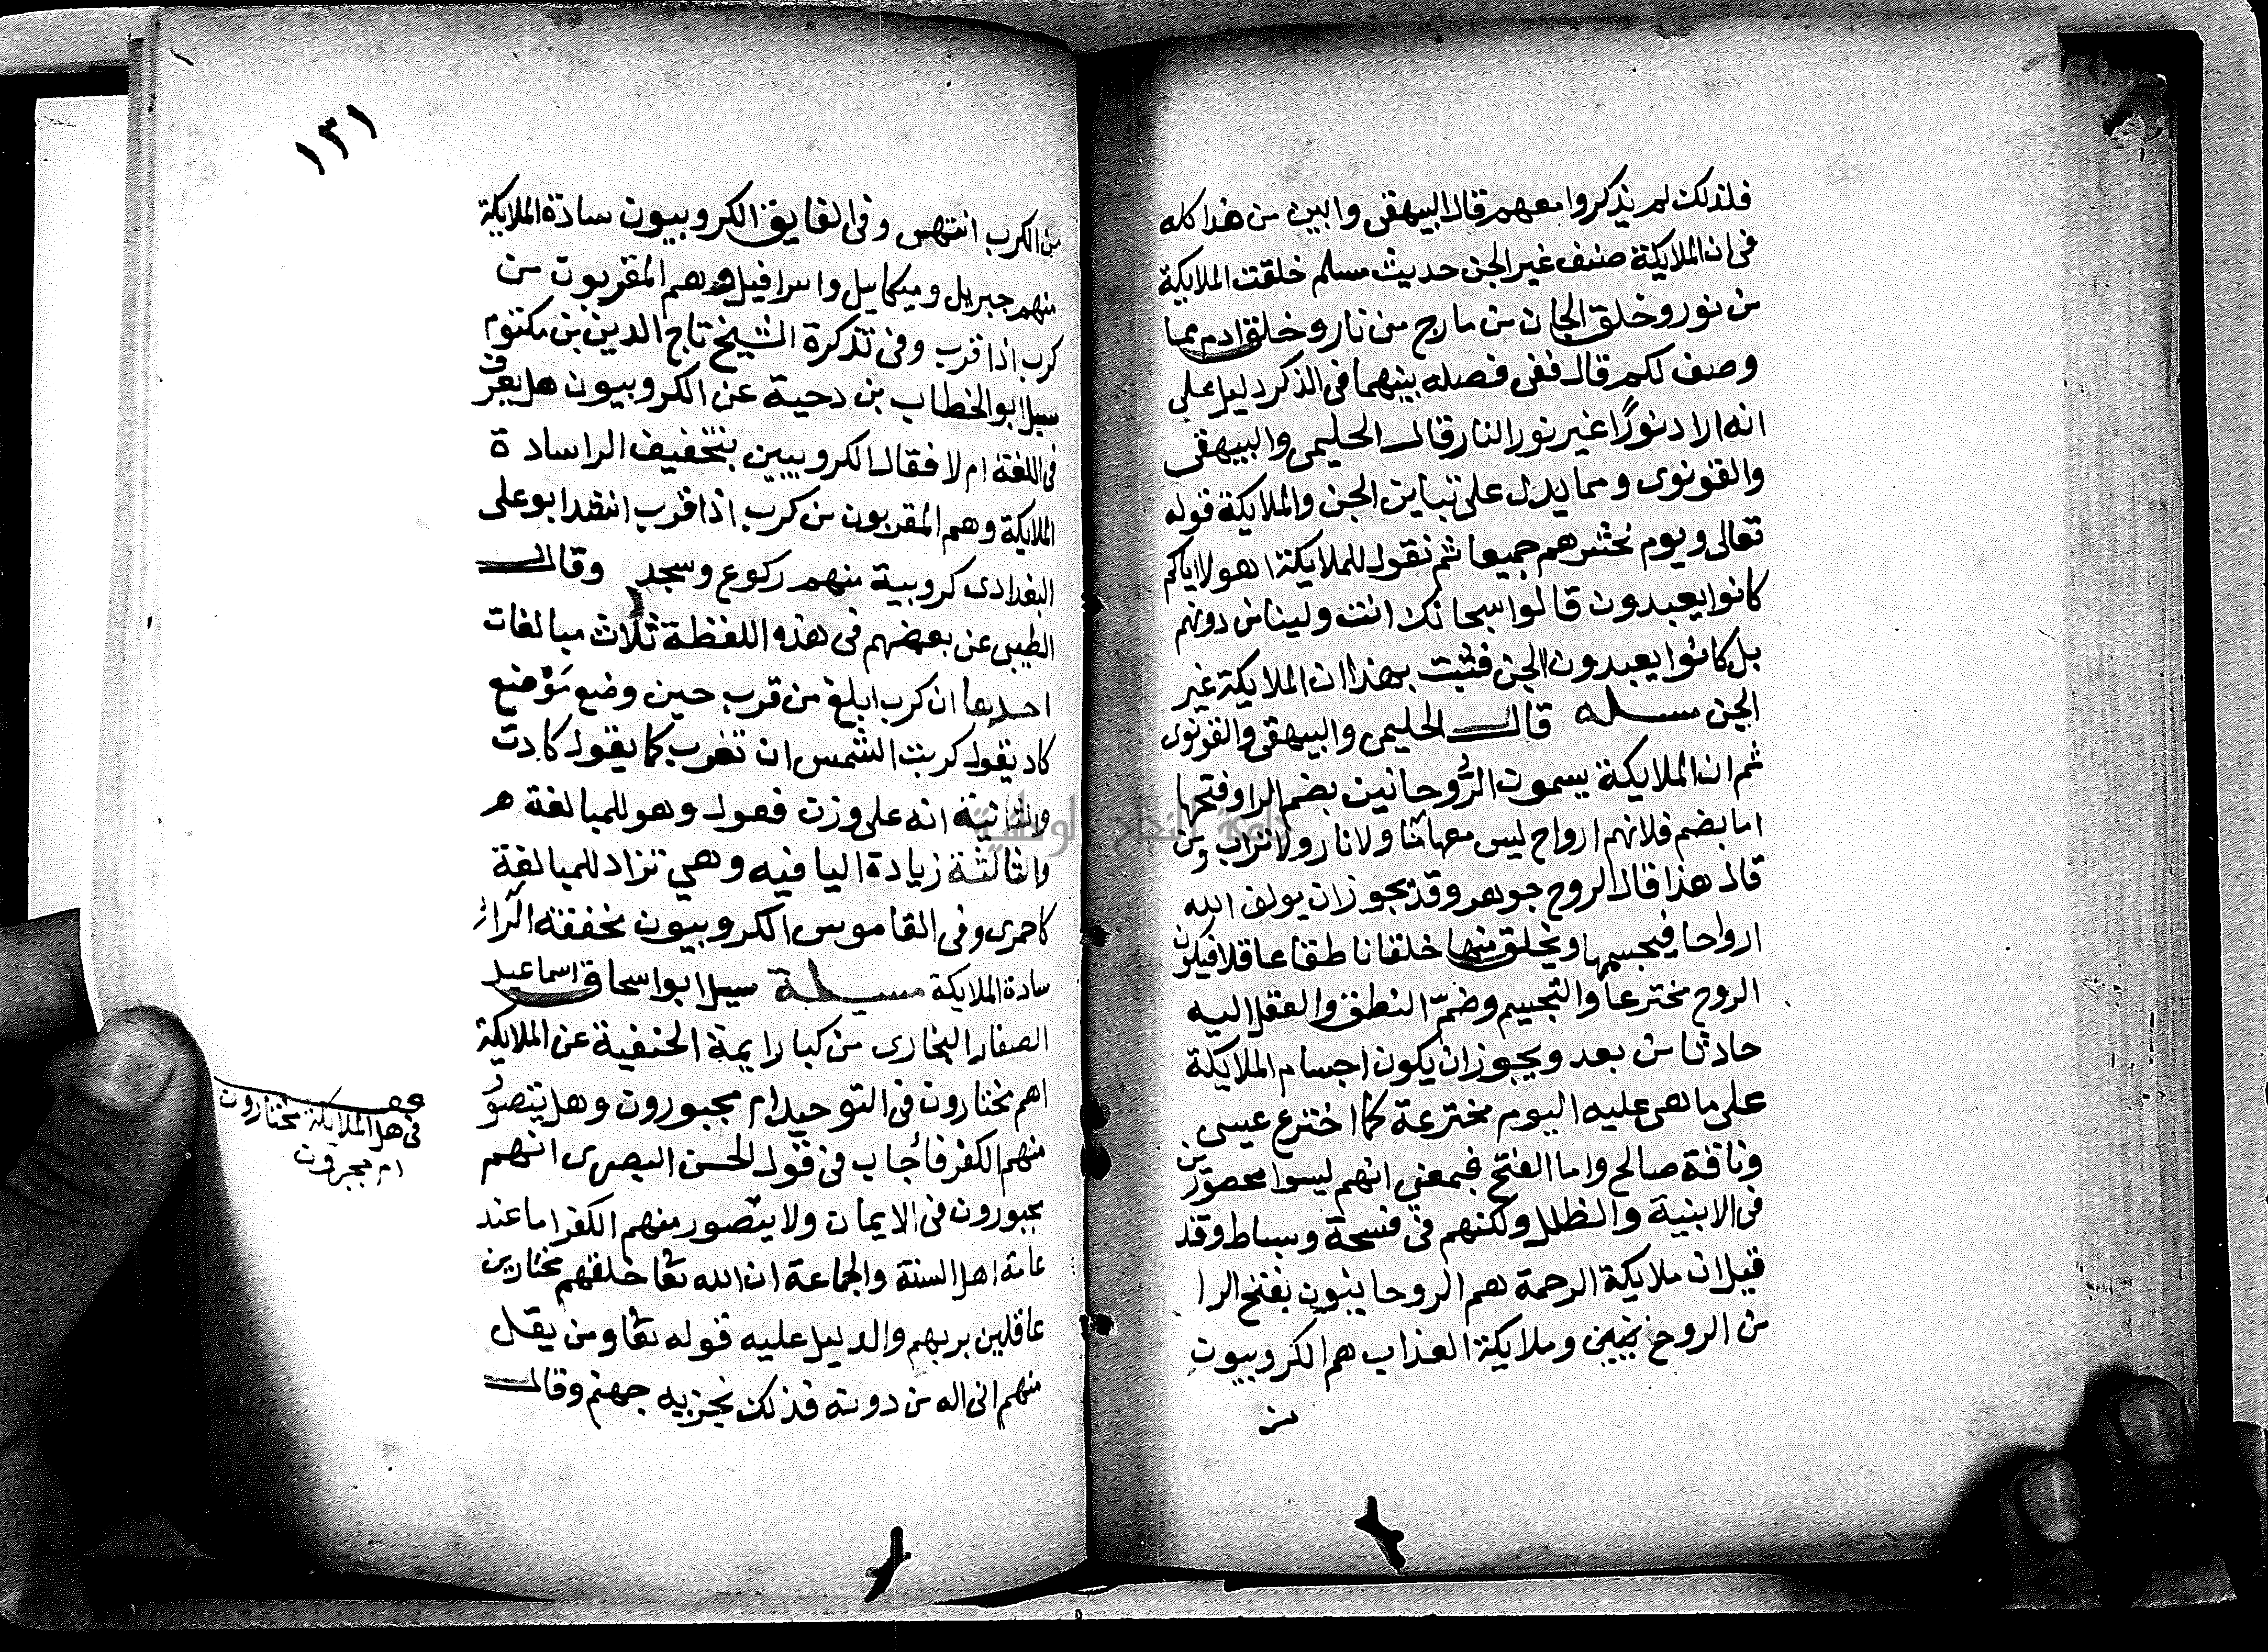 فلذلك لم يذكروا معهم قال البيهقى وابين من هذا كله
فى ان الملايكة صنف غير الجن حديث مسلم خلقت الملايكة
من نور وخلق الجان من مارج من نار وخلق ادم مما
وصف لكم قال ففى فصله بينهما فى الذكر دليل على
انه اراد نورًا غير نور النار قال الحليمى والبيهقى
والقونوى ومما يدل على تباين الجن والملايكة قوله
تعالى ويوم نحشرهم جميعا ثم نقول للملايكة اهولا اياكم
كانوا يعبدون قالوا سبحانك انت ولينا من دونهم
بل كانوا يعبدون الجن فثبت بهذا ان الملايكة غير
الجن مسله قال الحليمى والبيهقى والقونوى
ثم ان الملايكة يسمون الرُّوحانين بضم الرا وفتحها
اما بضم فلانهم ارواح ليس معها ما ولا نار ولا تراب ومن
قال هذا قال الروح جوهر وقد يجوز ان يولف الله
ارواحا فيجسمها ويخلق منها خلقا ناطقا عاقلا فيكون
الروح مخترعا والتجسيم وضمّ النطق والعقل اليه
حادثا من بعد ويجوز ان يكون اجسام الملايكة
على ما هى عليه اليوم مخترعة كما اخترع عيسى
وناقة صالح واما الفتح فبمعنى انهم ليسوا محصورين
فى الابنية والظلل ولكنهم فى فسحة وبساط وقد
قيل ان ملايكة الرحمة هم الروحانيون بفتح الرا
من الروح وملايكة العذاب هم الكروبيون
من
١٣١
من الكرب انتهى وفى الفايق الكروبيون سادة الملايكة
منهم جبريل وميكاييل واسرافيل وهم المقربون من
كرب اذا قرب وفى تذكرة الشيخ تاج الدين بن مكتوم
سيل ابو الخطاب بن دحية عن الكروبيون هل يعرف
فى اللغة ام لا فقال الكروبيين بتخفيف الرا سادة
الملايكة وهم المقربون من كرب اذا قرب انشد ابو على
البغدادى كروبية منهم ركوع وسجد وقال
الطيبى عن بعضهم فى هذه اللفظة ثلاث مبالغات
احدها ان كرب ابلغ من قرب حين وضع مَوْضع
كاد يقول كربت الشمس ان تغرب كما يقول كادت
والثانية انه على وزن فعول وهو للمبالغة
والثالثة زيادة اليا فيه وهى تزاد للمبالغة
كاحمرى وفى القاموس الكروبيون مخففة الرا
سادة الملايكة مسيلة سيل ابو اسحاق اسماعيل
الصفار البخارى من كبار ايمة الحنفية عن الملايكة
اهم مختارون فى التوحيد ام مجبورون وهل يتصوّر
منهم الكفر فأجاب فى قول الحسن البصرى انهم
مجبورون فى الايمان ولا يتصور منهم الكفر اما عند
عامة اهل السنة والجماعة ان الله تعا خلقهم مختارين
عاقلين بربهم والدليل عليه قوله تعا ومن يقل
منهم انى اله من دونه فذلك نجزيه جهنم وقال
فى هل الملايكة مختارون
ام مجبرون